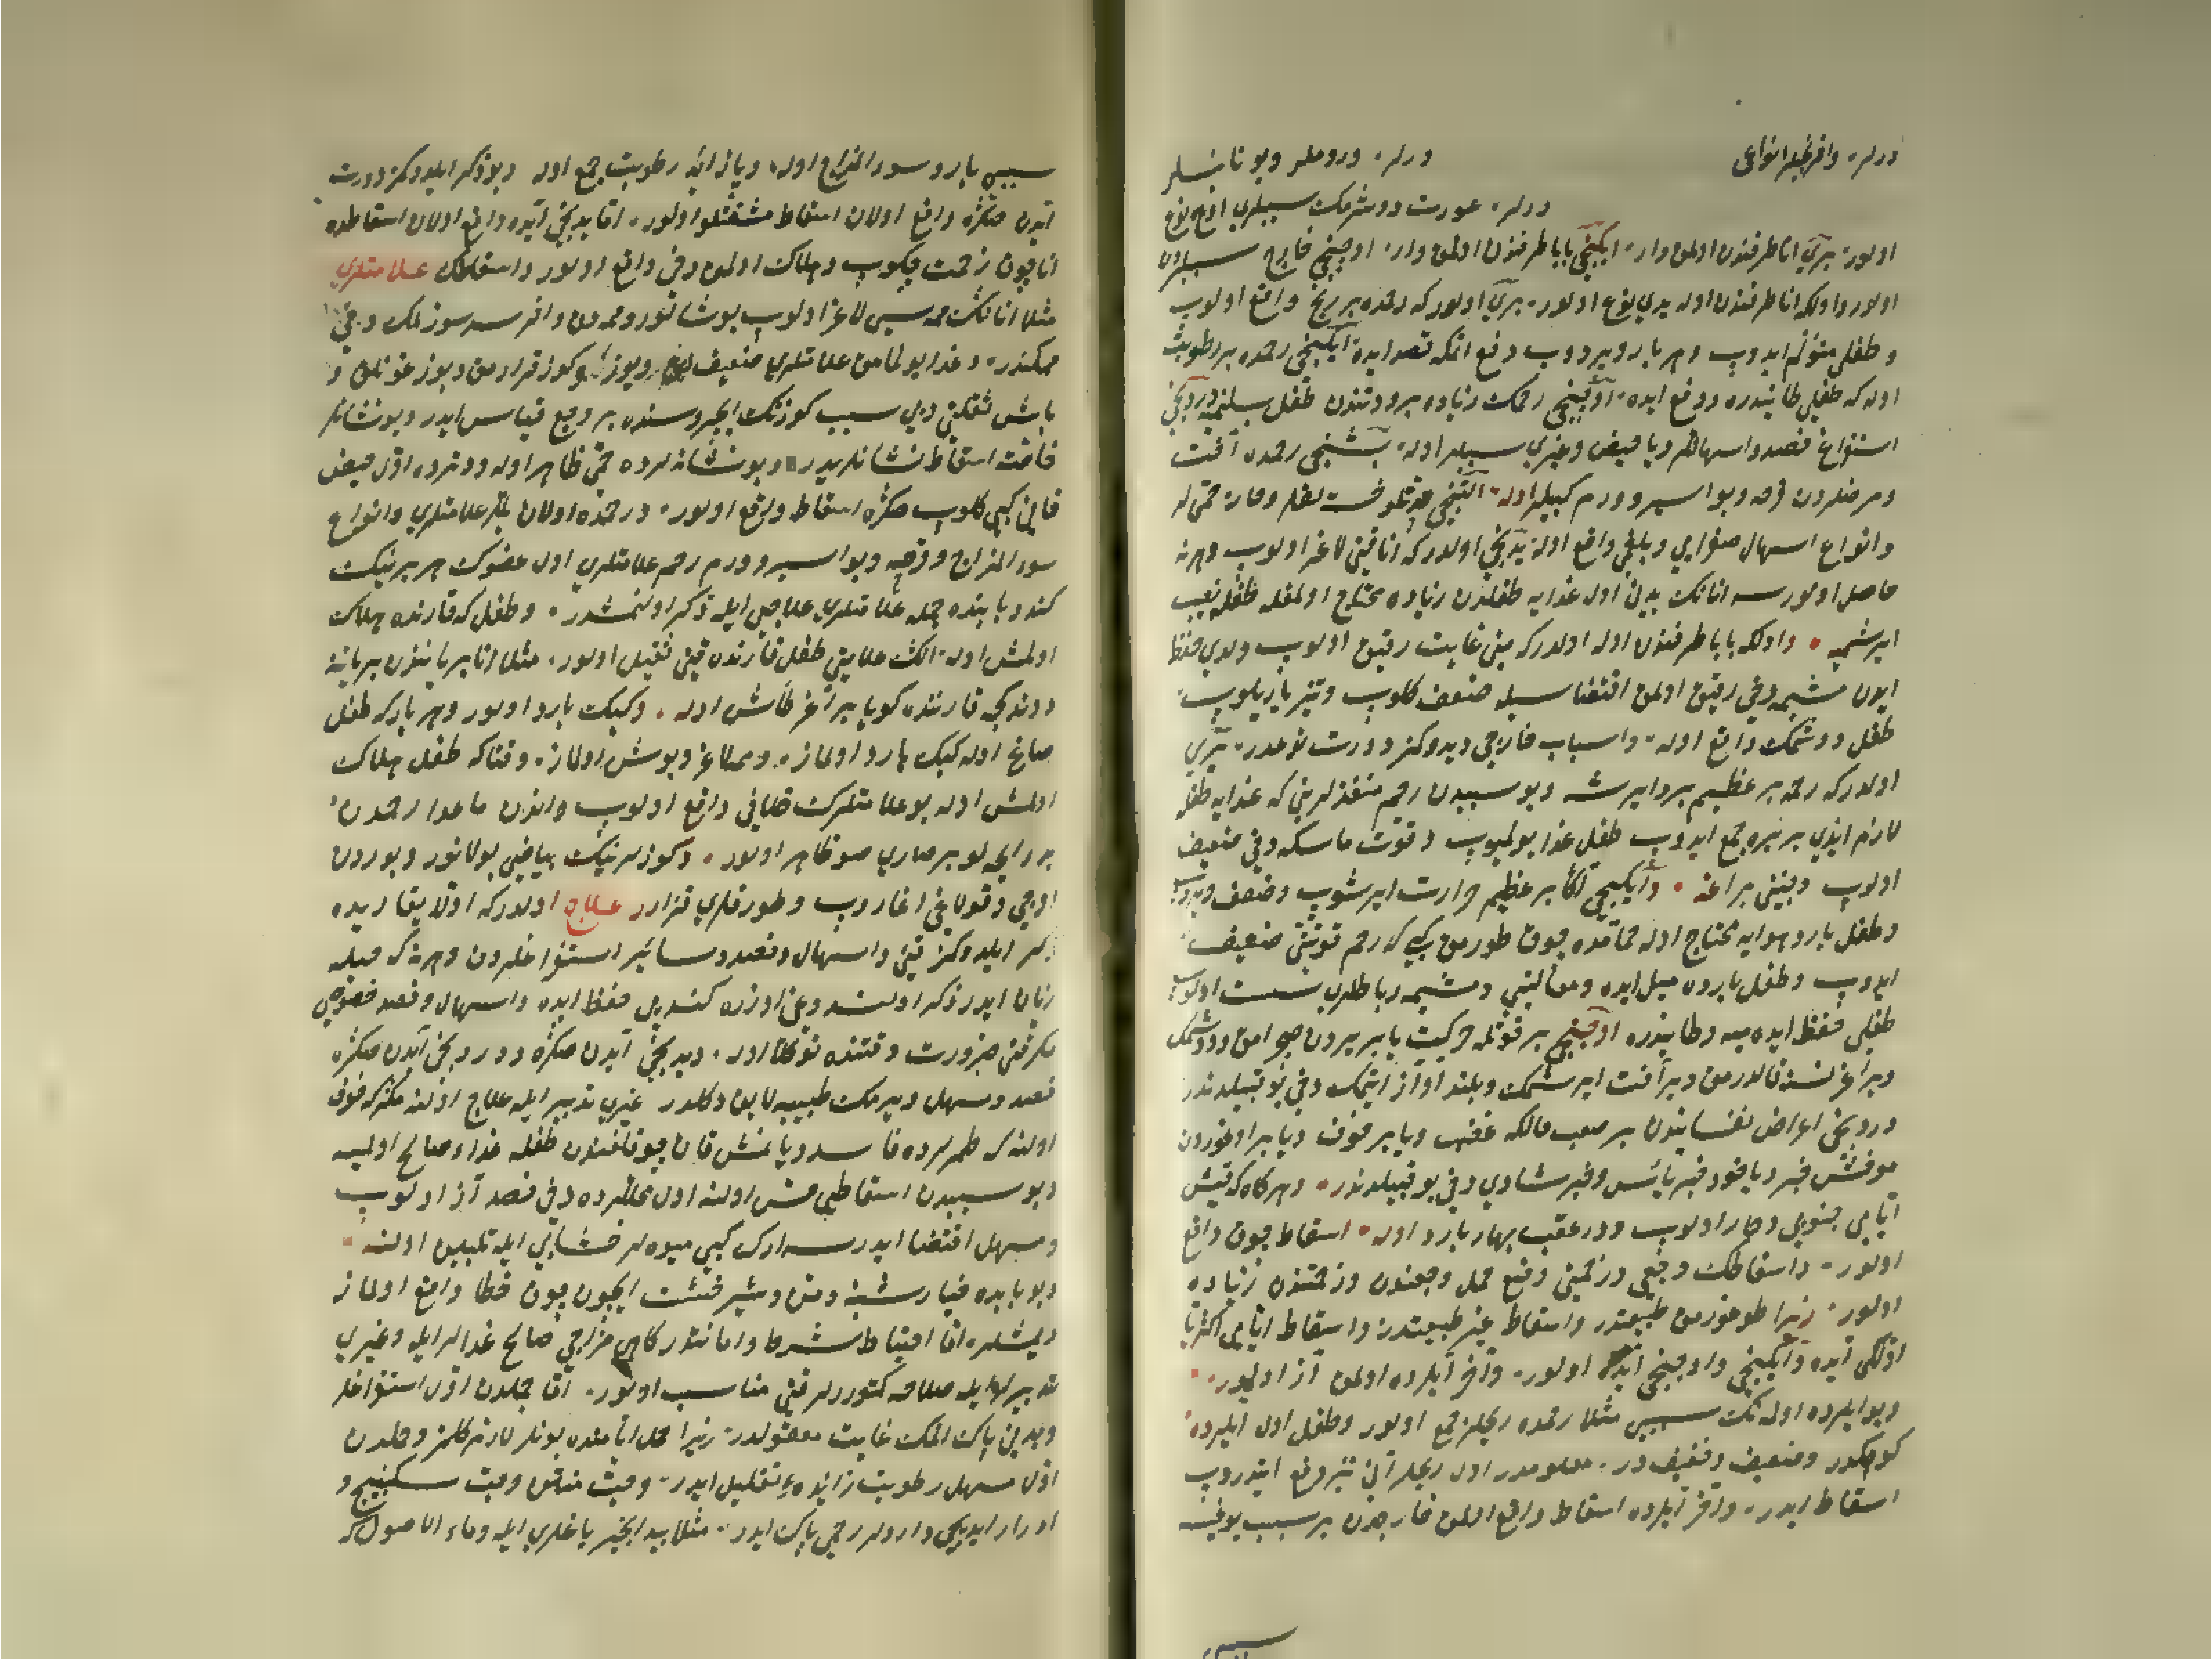 درلر، وافرنجیلر انواعی درلر، ورومیلر ویونانیلر
درلر، عورت دوشرمك سببلری اوچ نوع
اولور، بری انا طرفندن اولمق وار، ایکنجی بابا طرفندن اولمق وار، اوچنجی خارج سببلردن
اولور واولکه انا طرفندن اوله یدی نوع اولور، بری اولور که رحمده بر ریح واقع اولوب
و طفلی متولم ایدوب وهر بار ویردوب دفع اتمکه قصد ایده، ایکنجی رحمده بر رطوبت
اوله که طفلی طایندره ودفع ایده، اوچنجی رحمك زیاده برودتندن طفل بسلنمیه، دردنجی
استفراغ فصد واسهاللر ویا حیض وغیری سببلر اوله، بشنجی رحمده آفت
ومرضلردن قرحه وبواسیر وورم کبیلر اوله، التنجی
وانواع اسهال صفراوی وبلغمی واقع اوله، یدنجی اولدر که انا قتی لاغر اولوب وهر نه
حاصل اولورسه انانك بدنی اول غدایه طفلدن زیاده محتاج اولمغله طفله نصیب
ایرشمیه، واولکه بابا طرفندن اوله اولدر که منی غایت رقیق اولوب ولدی حفظ
ایدن مشیمه دخی رقیق اولمق اقتضاسیله ضعف کلوب وتیز یاریلوب
طفل دوشمك واقع اوله، واسباب خارجی دیدوکمز دورت نوعدر، بری
اولدر که رحمه بر عظیم برد ایرشه وبو سببدن رحم منفذلرینی که غدایه طفله
لازم ایدی بربره جمع ایدوب طفل غدا بولمیوب وقوت ماسکه دخی ضعیف
اولوب وجنینی براغه، وایکنجی اکا بر عظیم حرارت ایرشوب وضعف ویروب
وطفل بارد هوایه محتاج اوله حمامده چوق طورمق کبی که رحم قوتنی ضعیف
ایدوب وطفل بارده میل ایده ومشیمه رباطلری سست اولوب
طفلی حفظ ایده میه وطایندره اوچنجی بر قوتله حرکت یا بر یردن صچرامق ودوشمك
وبر آغر نسنه قالدرمق وبر آفت ایرشمك وبلند آواز ایتمك دخی بو قبیلدندر
دردنجی اعراض نفساینه‌دن بر صعب حالکه غضب ویا بر خوف ویا بر اوغوردن
موحش خبر ویاخود خبر یأس وخبر شادی دخی بو قبیلدندر، وهرکاه که قیش
ایامی جنوبی وحار اولوب ودر عقب بهار بارد اوله، اسقاط چوق واقع
اولور، واسقاطك وجعی وزحمتی وضع حمل وجعندن وزحمتندن زیاده
اولور، زیرا طوغورمق طبیعتدر واسقاط غیر طبیعتدر، واسقاط ایامی اکثریا
اولکی آیده وایکنجی واوچنجی آیده اولور، وآخر آیلرده اولمق آز اولور،
وبو ایلرده اوله‌نك سببی مثلا رحمده ریحلر جمع اولور وطفل اول ایلرده
کوچکدر وضعیف وخفیفدر، معلومدر اول ریحلر آنی تیز دفع ایتدروب
اسقاط ایدر، وآخر آیلرده اسقاط واقع اولمق خارجدن بر سبب یوغیسه
سببی بارد سوء المزاج اوله، ویا زائد رطوبت جمع اوله وبو ذکر ایلدوکمز دورت
آیدن صکره واقع اولان اسقاط مشقتلو اولور، اما یدنجی آیده واقع اولان اسقاطده
انا چوق زحمت چکوب وهلاك اولمق دخی واقع اولور واسقاطك علامتلری
مثلا انانك ممه‌سی لاغر اولوب بوشانور وممه‌دن وافر سد سوزلمك دخی
ممکندر، وغدا بولمامق علامتلری ضعیف لق ویوز وکوز قزارمق ویوز عفونلق و
باش ثقلتی وبی سبب کوزنك ایچروسنده بر وجع قیاس ایدر وبو نشانلر
خافت اسقاط نشانلریدر، وبو نشانه‌لرده حمی ظاهر اوله ودتره‌ده اول حیض
قانی کبی کلوب صکره اسقاط واقع اولور، ورحمده اولان علامتلری وانواع
سوء المزاج وقرحه وبواسیر وورم رحم علامتلری اول عضوك هر برینك
کندو بابنده جمله علامتلری علاجی ایله ذکر اولنمشدر، وطفل که قارنده هلاك
اولمش اوله، انك علامتی طفل قارنده قتی ثقیل اولور، مثلا انا بر یانندن بر یانه
دوندکجه قارننده کویا بر آغر طاش اوله، وکبك بارد اولور وهر بار که طفل
صاغ اوله کبك بارد اولماز، وممه لاغر وبوش اولماز، وقتاکه طفل هلاك
اولمش اوله بو علامتلرك خلافی واقع اولوب واندن ماعدا رحمدن
بد رایحه‌لو بر صاری صو ظاهر اولور، وکوزلرینك بیاضی بولانور وبورون
اوجی وقولاغی اغاروب وطوداقلری قزارر علاج اولدر که اولا یقاریده
ذکر ایلدوکمز قی واسهال وفصد وسائر استفراغلردن وهر نه که حبله
زیان ایدر ذکر اولندوغی اوزره کندویی حفظ ایده واسهال وفصد خصوصی
مکر قتی ضرورت وقتنده توکلا اوله، ویدنجی آیدن صکره ودردنجی آیدن صکره
فصد ومسهل ویرمك طبیبه لایق دکلدر غیری تدبیر ایله علاج اولنه مکر که خوف
اولنه که طمرلرده فاسد ویانمش قان چوقلغندن طفله غداء صالح اولمیه
وبو سببدن اسقاط حس اولنه اول محللرده دخی فصد آز اولوب
ومسهل اقتضا ایدرسه ارك کبی میوه‌لر خشابی ایله تلیین اولنه
وبو بابده خیارشنبه ومن وشیر خشت ایچون چوق خطا واقع اولماز
دیمشلر، اما احتیاط شرط واماندر کاهی مزاجی صالح غدالر ایله وغیری
تدبیرلر ایله صلاحه کتوررلر قتی مناسب اولور، اما حملدن اول استفراغلر
وبدنی پاك اتمك غایت معقولدر، زیرا حمل ایامنده بونلر لازم کلمز وحملدن
اول مسهل رطوبت زائده‌یی تقلیل ایدر، وحب منتن وحب سکبینج و
ادرار ایدیجی دارولر رحمی پاك ایدر، مثلا بید انجیر یاغلری ایله وماء الاصول که